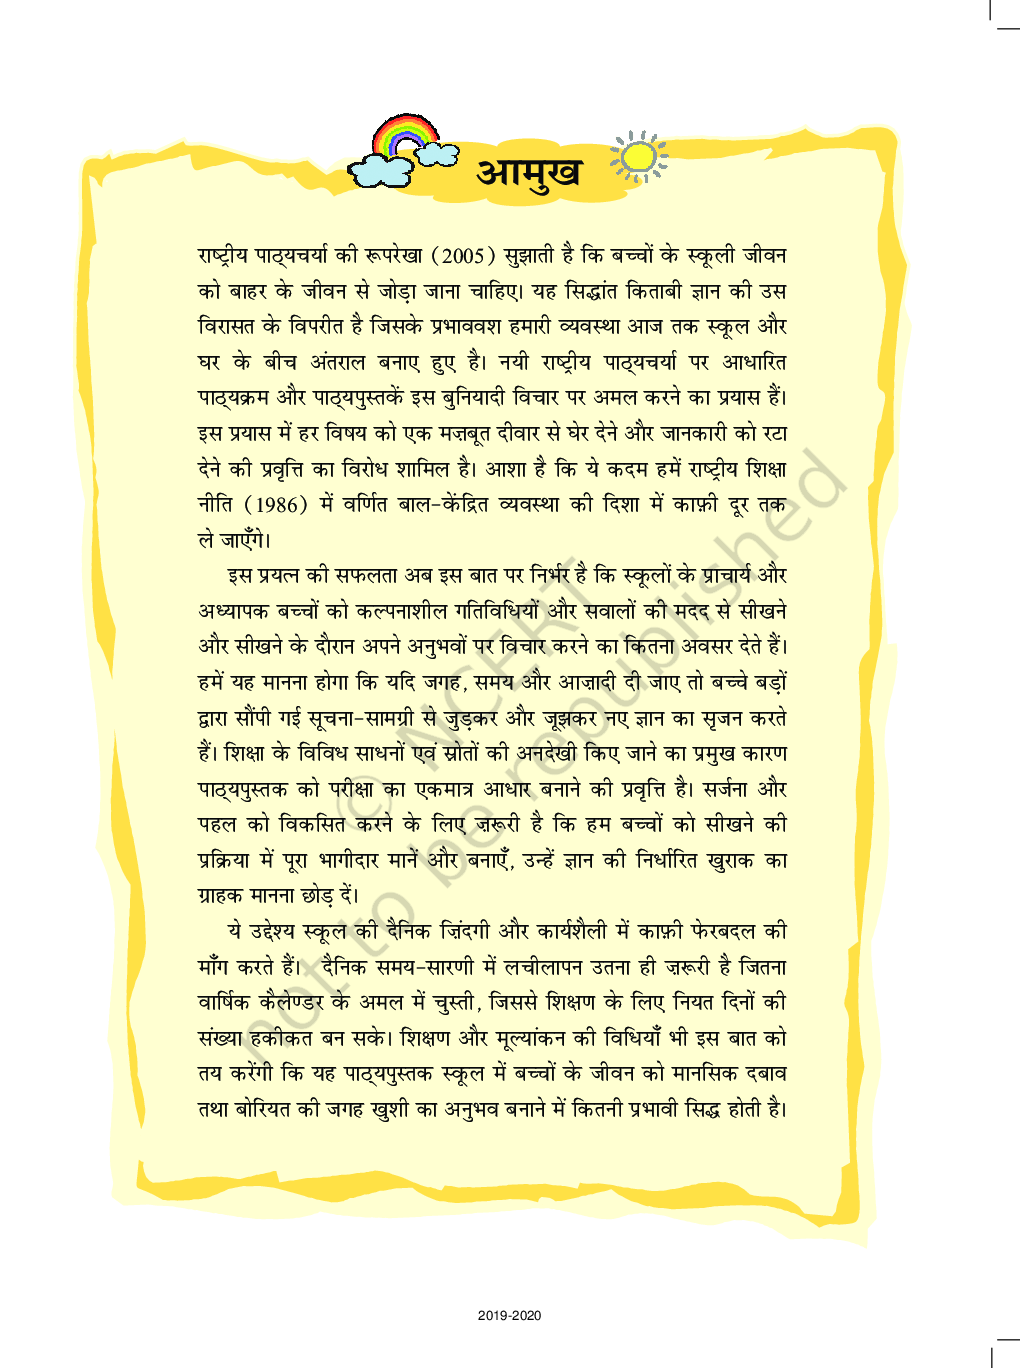 आमुख
राष्ट्रीय पाठ्यचर्या की रूपरेखा (2005) सुझाती है कि बच्चों के स्कूली जीवन
को बाहर के जीवन से जोड़ा जाना चाहिए। यह सिद्धांत किताबी ज्ञान की उस
विरासत के विपरीत है जिसके प्रभाववश हमारी व्यवस्था आज तक स्कूल और
घर के बीच अंतराल बनाए हुए है। नयी राष्ट्रीय पाठ्यचर्या पर आधारित
पाठ्यक्रम और पाठ्यपुस्तकें इस बुनियादी विचार पर अमल करने का प्रयास हैं।
इस प्रयास में हर विषय को एक मज़बूत दीवार से घेर देने और जानकारी को रटा
देने की प्रवृत्ति का विरोध शामिल है। आशा है कि ये कदम हमें राष्ट्रीय शिक्षा
नीति (1986) में वर्णित बाल-केंद्रित व्यवस्था की दिशा में काफ़ी दूर तक
ले जाएँगे।
इस प्रयत्न की सफलता अब इस बात पर निर्भर है कि स्कूलों के प्राचार्य और
अध्यापक बच्चों को कल्पनाशील गतिविधियों और सवालों की मदद से सीखने
और सीखने के दौरान अपने अनुभवों पर विचार करने का कितना अवसर देते हैं।
हमें यह मानना होगा कि यदि जगह, समय और आज़ादी दी जाए तो बच्चे बड़ों
द्वारा सौंपी गई सूचना-सामग्री से जुड़कर और जूझकर नए ज्ञान का सृजन करते
हैं। शिक्षा के विविध साधनों एवं स्रोतों की अनदेखी किए जाने का प्रमुख कारण
पाठ्यपुस्तक को परीक्षा का एकमात्र आधार बनाने की प्रवृत्ति है। सर्जना और
पहल को विकसित करने के लिए ज़रूरी है कि हम बच्चों को सीखने की
प्रक्रिया में पूरा भागीदार मानें और बनाएँ, उन्हें ज्ञान की निर्धारित खुराक का
ग्राहक मानना छोड़ दें।
ये उद्देश्य स्कूल की दैनिक ज़िंदगी और कार्यशैली में काफ़ी फेरबदल की
माँग करते हैं। दैनिक समय-सारणी में लचीलापन उतना ही ज़रूरी है जितना
वार्षिक कैलेण्डर के अमल में चुस्ती, जिससे शिक्षण के लिए नियत दिनों की
संख्या हकीकत बन सके। शिक्षण और मूल्यांकन की विधियाँ भी इस बात को
तय करेंगी कि यह पाठ्यपुस्तक स्कूल में बच्चों के जीवन को मानसिक दबाव
तथा बोरियत की जगह खुशी का अनुभव बनाने में कितनी प्रभावी सिद्ध होती है।
© NCERT
not to be republished
2019-2020